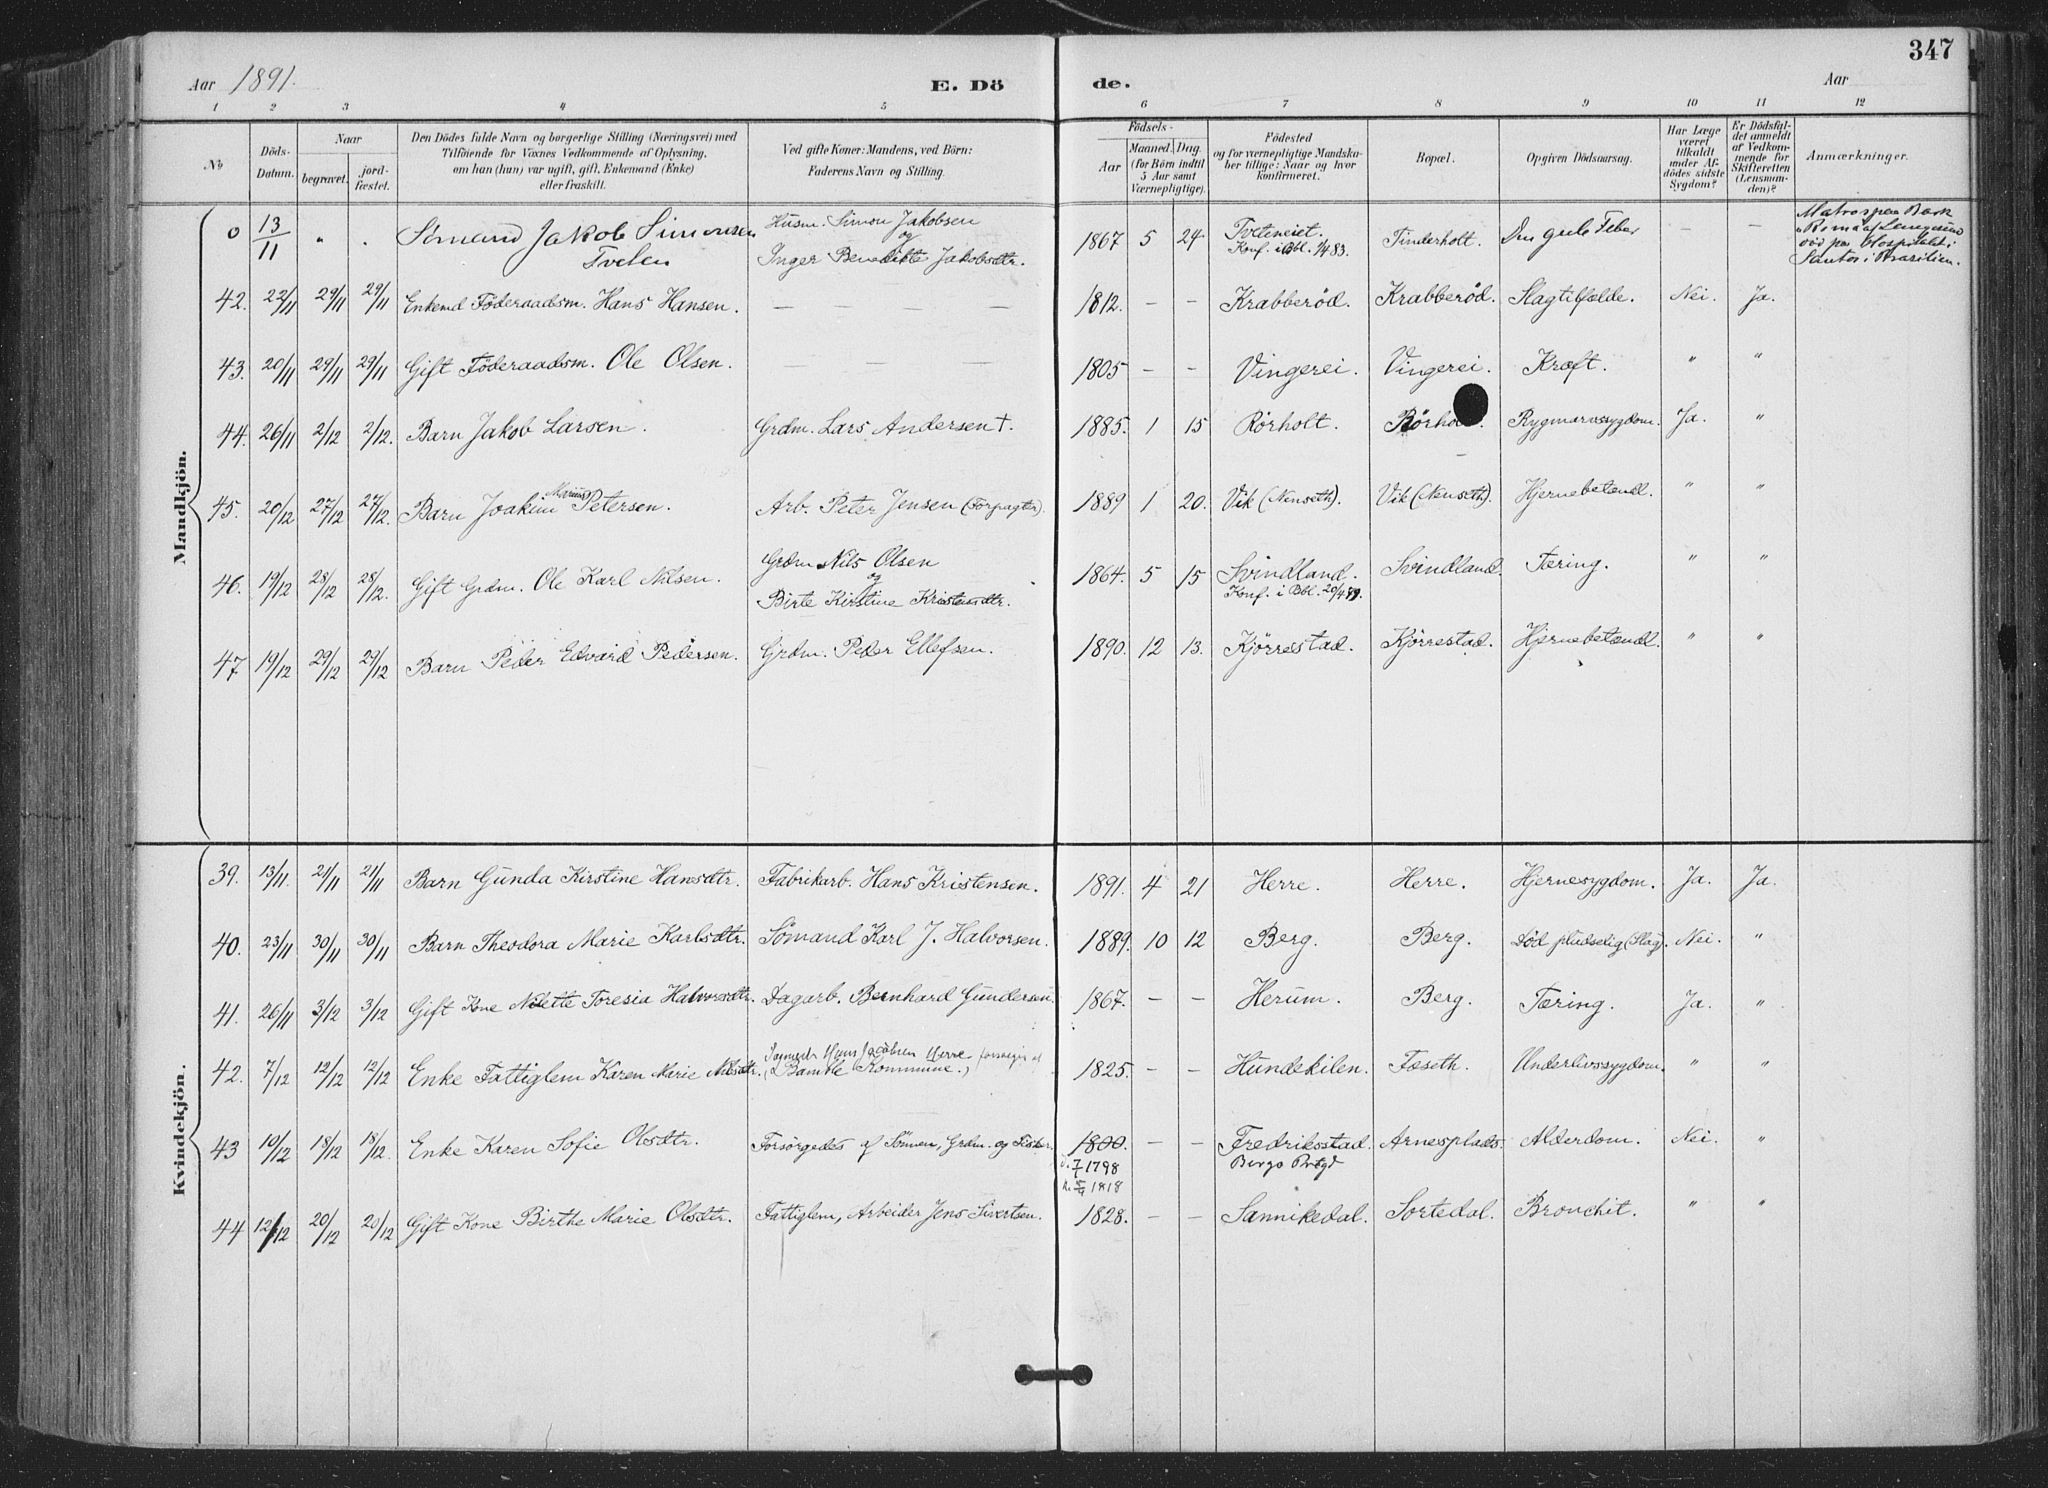 347
Aar 1891. E. Dö de. Aar
1 2 3 4 5 6 7 8 9 10 11 12
No
Döds-Datum.
Naar
begravet.
jordfæstet.
Den Dödes fulde Navn og borgerlige Stilling (Næringsvei) med
Tilföiende for Voxnes Vedkommende af Oplysning,
om han (hun) var ugift, gift, Enkemand (Enke)
eller fraskilt.
Ved gifte Koner: Mandens, ved Börn:
Faderens Navn og Stilling.
Födsels-
Aar
Maaned. Dag.
(for Börn indtil
5 Aar samt
Værnepligtige).
Födested
og for værnepligtige Mandska-
ber tillige: Naar og hvor
konfirmeret.
Bopæl.
Opgiven Dödsaarsag.
Har Læge
været
tilkaldt
under Af-
dödes sidste
Sygdom?
Er Dödsfal-
det anmeldt
af Vedkom-
mende for
Skifteretten
(Lensman-
den)?
Anmærkninger.
Mandkjön.
0 13/11 " . Sømand Jakob Simonsen Husm. Simon Jakobsen 1867 5 24 Tveteneiet. Tinderholt. Den gule Feber — — Matros paa Bark
Tveten og Konf. i Bbl. 1/4 83. "Roma" af Langesund
Inger Benedikte Jakobsdtr. død paa Hospitalet i
Santos i Brasilien.
42. 22/11 29/11 29/11 Enkemd Föderaadsm. Hans Hansen. — — — — 1812. — — Krabberød. Krabberød. Slagtilfælde. Nei. Ja.
43. 20/11 29/11 29/11 Gift Föderaadsm. Ole Olsen. — — — 1805 — — Vingerei. Vingerei. Kræft. " "
44. 26/11 2/12 2/12. Barn Jakob Larsen. Grdm. Lars Andersen †. 1885. 1 15 Rörholt. Rörhol. Rygmarvssygdom. Ja. "
45. 20/12 27/12 27/12. Barn Joakim Marius Petersen. Arb. Peter Jensen (Forpagter). 1889 1 20. Vik (Nenseth). Vik (Nenseth). Hjernebetændl. " "
46. 19/12 28/12 28/12. Gift Grdm. Ole Karl Nilsen. Grdm Nils Olsen 1864. 5 15 Svindland. Svindland. Tæring. " "
og Konf. i Bbl.
Birte Kirstine Kristensdtr.
47. 19/12 29/12 29/12 Barn Peder Edvard Pedersen. Grdm. Peder Ellefsen. 1890. 12 13. Kjörrestad. Kjörrestad. Hjernebetændl. " "
Kvindekjön.
39. 13/11. 21/11 21/11 Barn Gunda Kirstine Hansdtr. Fabrikarb. Hans Kristensen. 1891. 4 21 Herre. Herre. Hjernesygdom. Ja. Ja.
40. 23/11 30/11 30/11 Barn Theodora Marie Karlsdtr. Sömand Karl J. Halvorsen. 1889. 10 12 Berg. Berg. Död pludselig (Slag). Nei. "
41. 26/11 3/12 3/12 Gift Kone Toresia Halvorsdtr. Dagarb. Bernhard Gundersen. 1867. — — Herum. Berg. Tæring. Ja. "
42. 7/12 12/12 12/12 Enke Fattiglem Karen Marie Nilsdtr. Hans Jacobsen Herre forsørges af 1825. — — Hundskilen. Fæseth. Underlivssygdom. " "
Bamble Kommune.
43 10/12 18/12 18/12. Enke Karen Sofie Olsdtr. Forsörgedes af Sönnen, Grdm. og Fisker. 1800. — — Fredriksstad Arnesplads. Alderdom. Nei. "
1798
1818
44 12/12 20/12 20/12 Gift Kone Birthe Marie Olsdtr. Fattiglem, Arbeider Jens Sivertsen. 1828. — — Sannikedal. Sortedal. Bronchit. " "